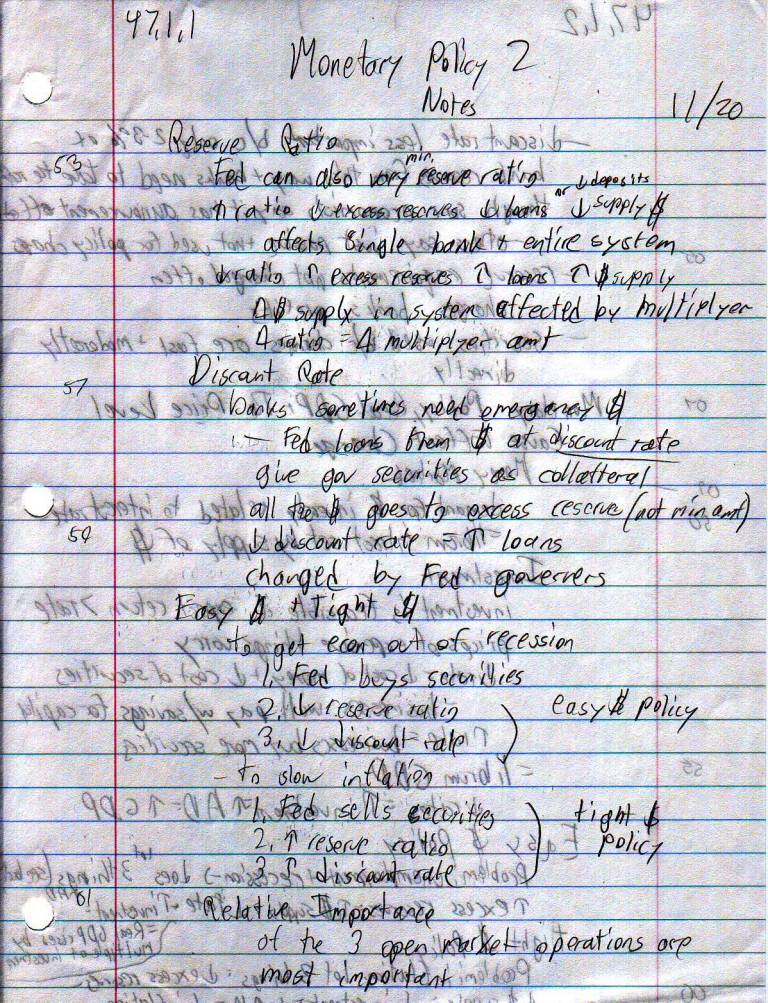 47.1.1
Monetary Policy 2
Notes
11/20
Reserve Ratio
53
Fed can also vary min. reserve ratio
↑ ratio ↓ excess reserves ↓ loans or ↓ deposits ↓ supply $
affects single bank + entire system
↓ ratio ↑ excess reserves ↑ loans ↑ $ supply
Δ $ supply in system affected by multiplyer
Δ ratio = Δ multiplyer amt
Discant Rate
57
banks sometimes need emergancy $
— Fed loans them $ at discount rate
give gov securities as collatteral
all the $ goes to excess reserve (not min amt)
59
↓ discount rate = ↑ loans
changed by Fed governers
Easy $ + Tight $
to get econ out of recession
1. Fed buys securities
2. ↓ reserve ratio
3. ↓ discount rate
easy $ policy
– to slow inflation
1. Fed sells securities
2. ↑ reserve ratio
3 ↑ discount rate
tight $
policy
61
Relative Importance
of the 3 open market operations are
most important